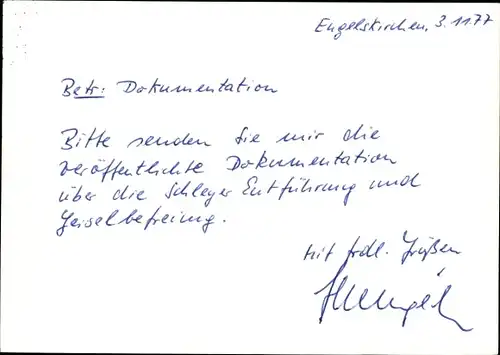 Engelskirchen, 3.11.77
Betr.: Dokumentation
Bitte senden Sie mir die
veröffentlichte Dokumentation
über die Schleyer Entführung und
Geiselbefreiung.
Mit frdl. Grüßen